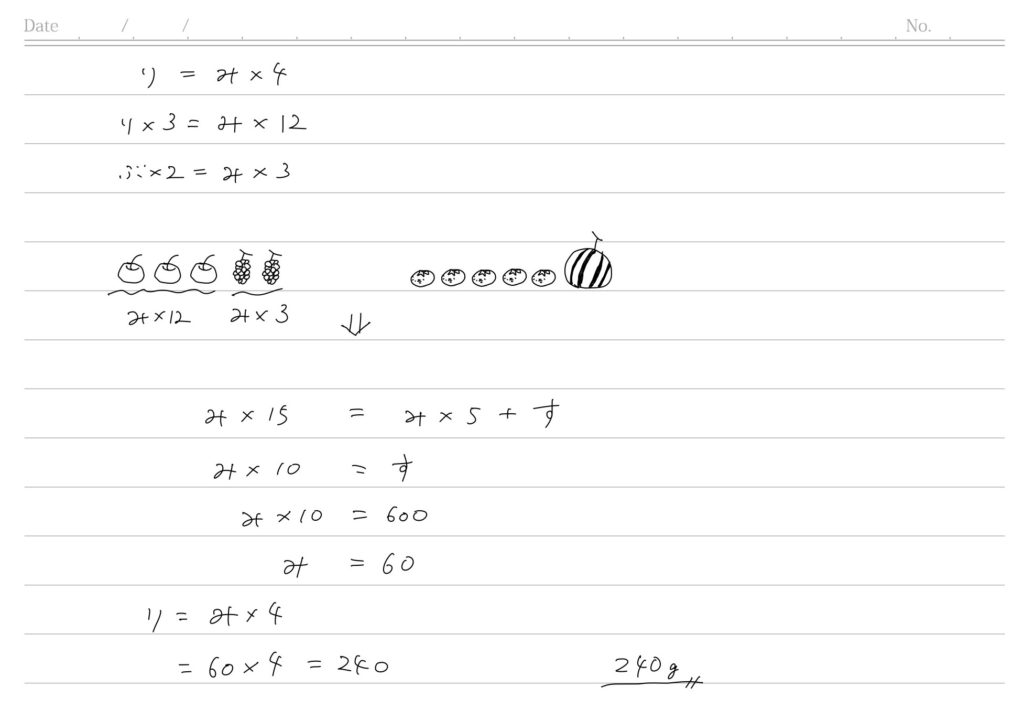 Date / / No.
り = み × 4
り × 3 = み × 12
ぶ × 2 = み × 3
み × 12 み × 3
み × 15 = み × 5 + す
み × 10 = す
み × 10 = 600
み = 60
り = み × 4
= 60 × 4 = 240 240g